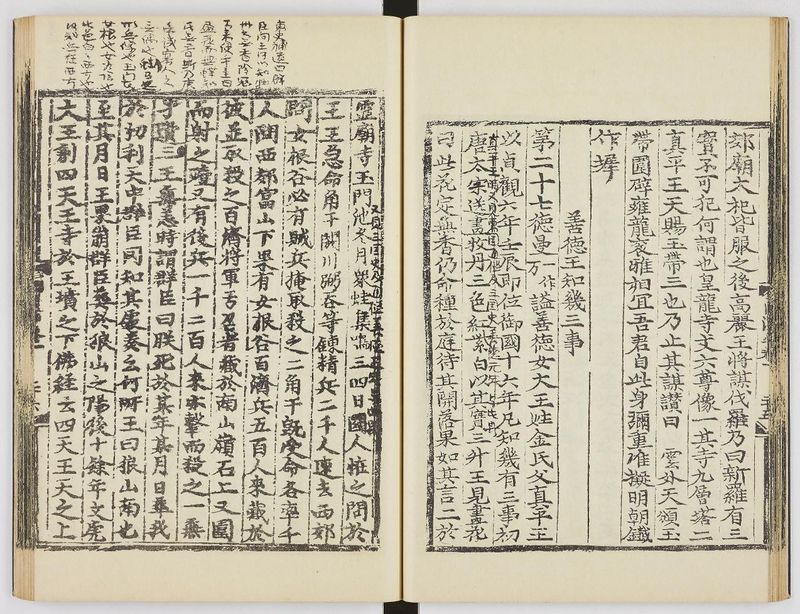 郊廟大祀皆服之後高麗王將謀伐羅乃曰新羅有三
寶不可犯何謂也皇龍寺丈六尊像一其寺九層塔二
真平王天賜玉帶三也乃止其謀讚曰 雲外天頒玉
帶圍辟雍龍袞雅相宜吾君自此身彌重准擬明朝鐵
作墀
善德王知幾三事
第二十七德曼一作万諡善德女大王姓金氏父真平王
以貞觀六年壬辰即位御國十六年凡知幾有三事初
唐太宗送畫牧丹三色紅紫白以其實三升王見畫花
曰此花定無香仍命種於庭待其開落果如其言二於
靈廟寺玉門池冬月衆蛙集鳴三四日國人怪之問於
王王急命角干閼川弼吞等鍊精兵二千人速去西郊
問女根谷必有賊兵掩取殺之二角干旣受命各率千
人問西郊富山下果有女根谷百濟兵五百人來藏於
彼並取殺之百濟將軍亐召者藏於南山嶺石上又圍
而射之殪又有後兵一千二百人來亦擊而殺之一無
孑遺三王無恙時謂群臣曰朕死於某年某月日葬我
於忉利天中群臣罔知其處奏云何所王曰狼山南也
至其月日王果崩群臣葬於狼山之陽後十餘年文虎
大王創四天王寺於王墳之下佛經云四天王天之上